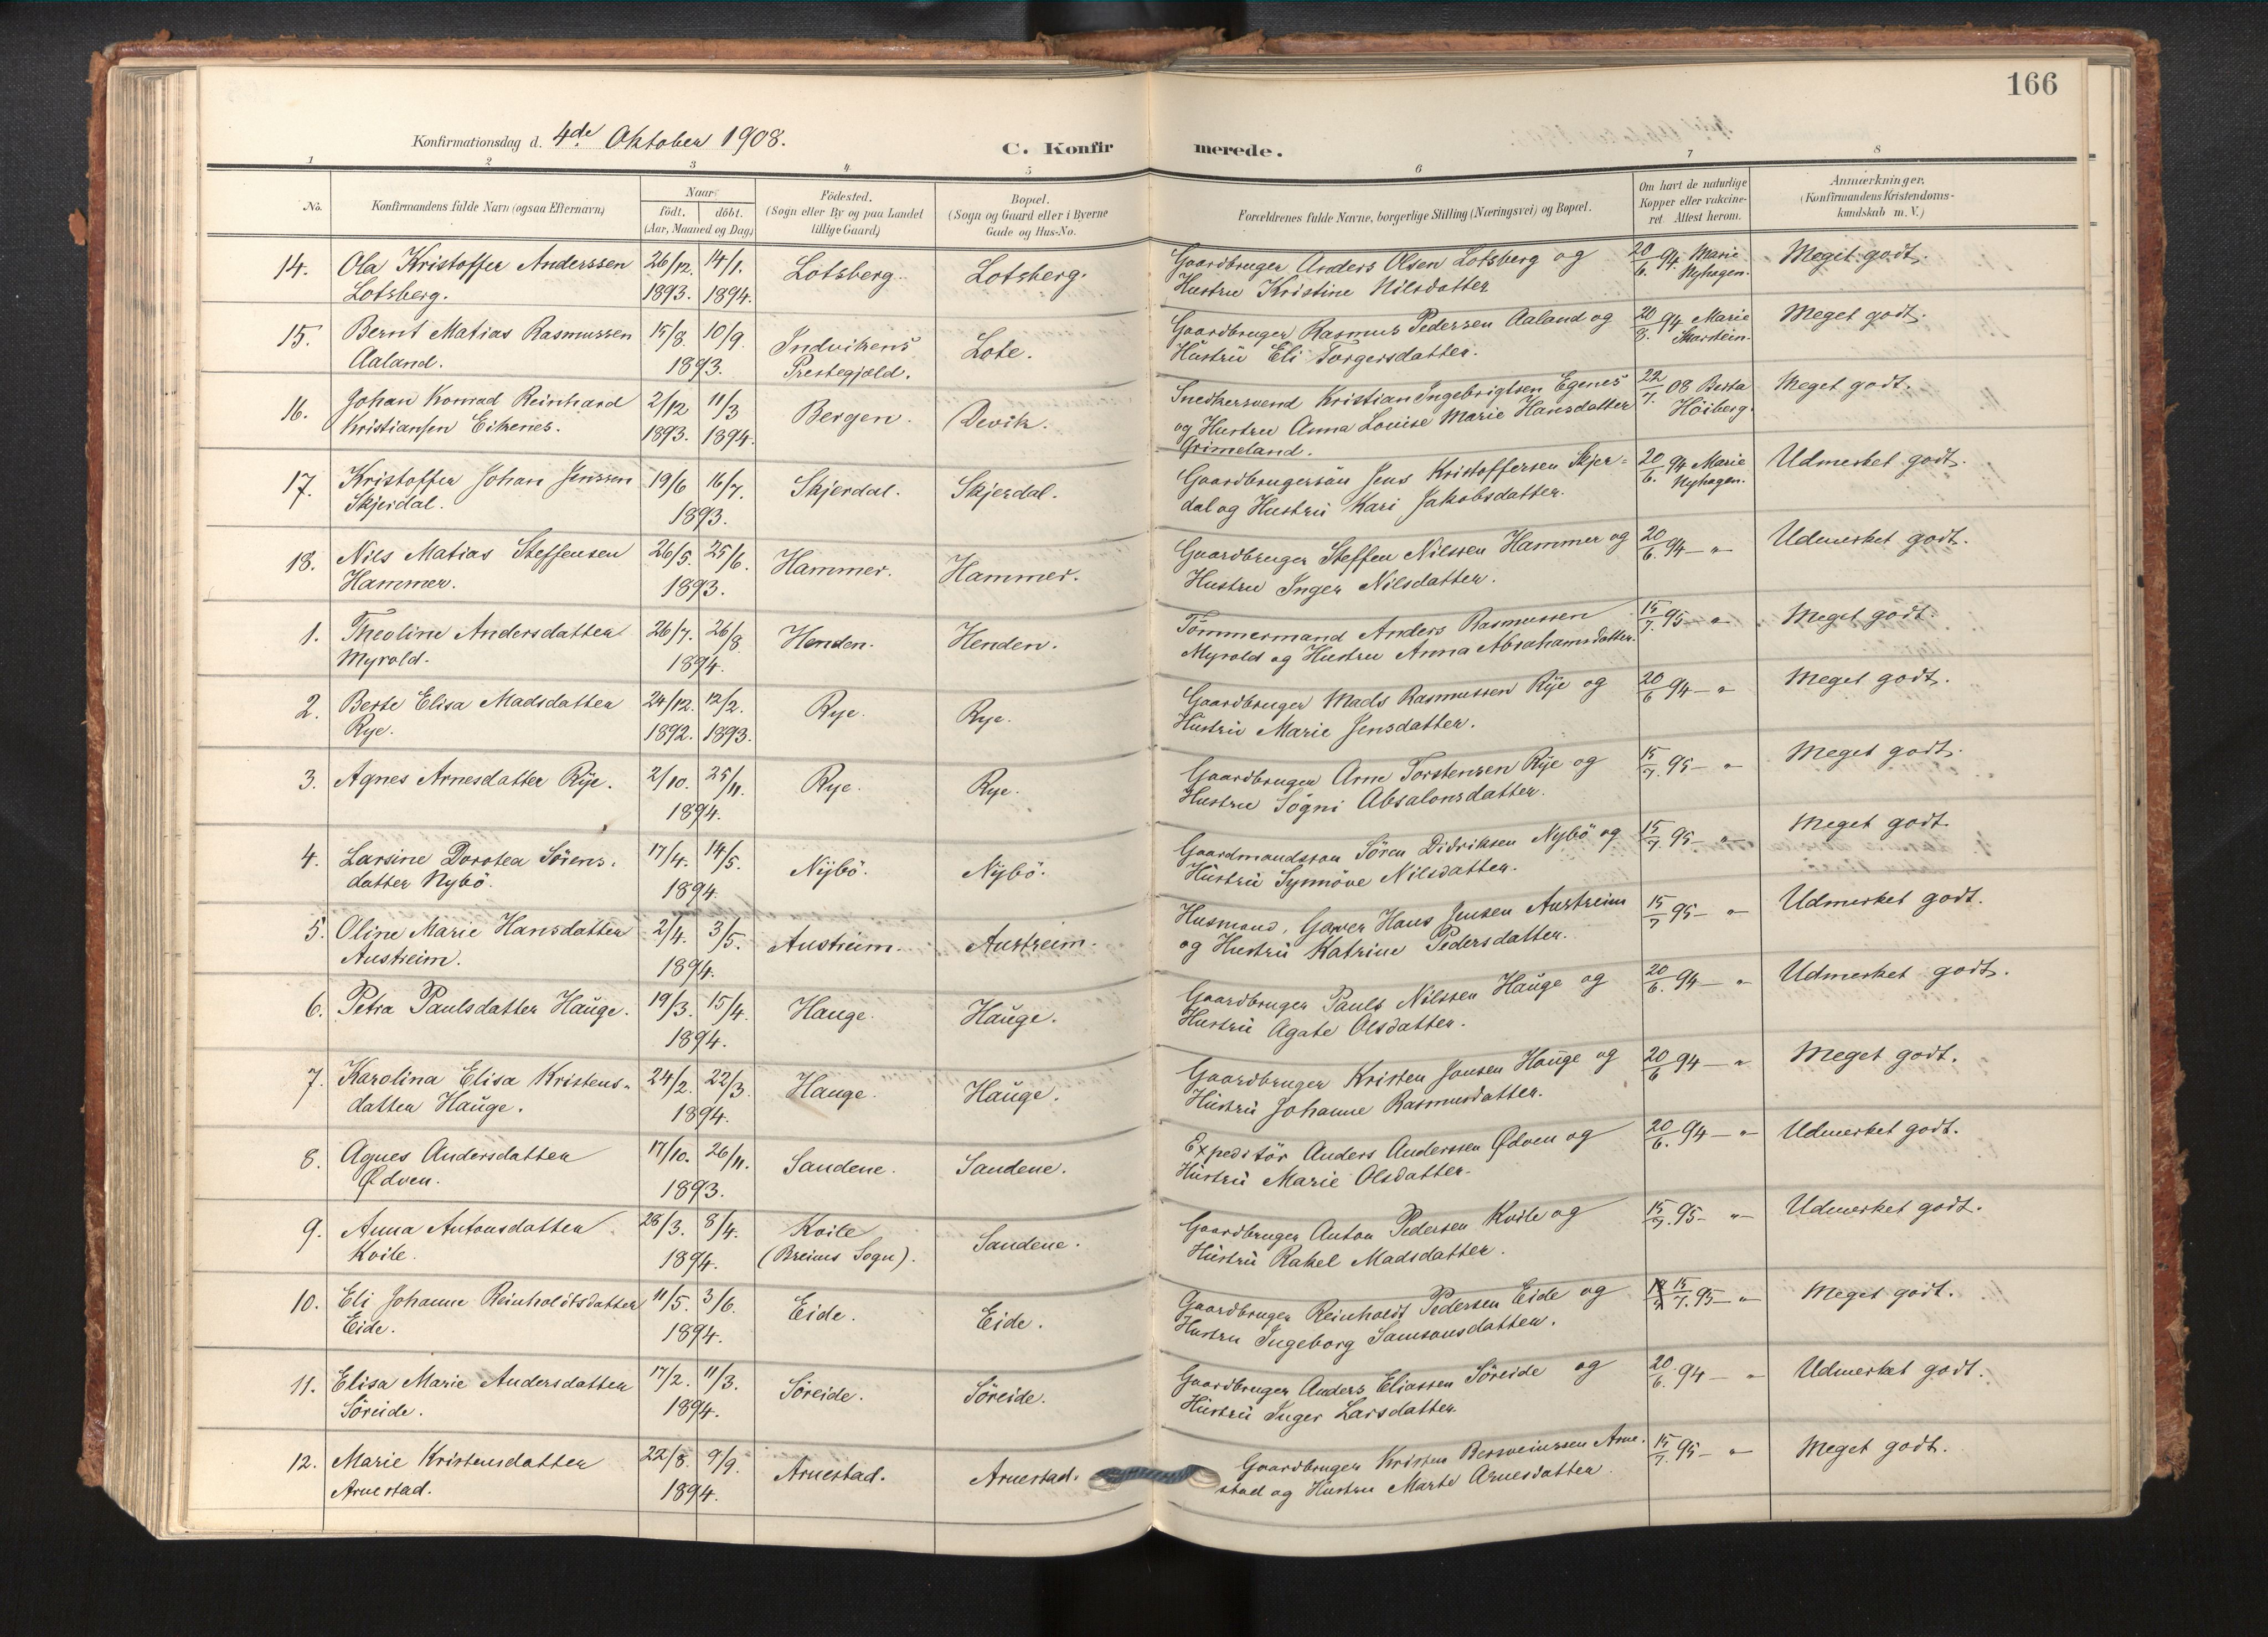 166
Konfirmationsdag d. 4de Oktober 1908.
C. Konfirmerede.
1 2 3 4 5 6 7 8
No.
Konfirmandens fulde Navn (ogsaa Efternavn)
Naar
födt. döbt.
(Aar, Maaned og Dag)
Födested.
(Sogn eller By og paa Landet
tillige Gaard)
Bopæl.
(Sogn og Gaard eller i Byerne
Gade og Hus-No.
Forældrenes fulde Navne, borgerlige Stilling (Næringsvei) og Bopæl.
Om havt de naturlige
Kopper eller vakcine-
ret Attest herom.
Anmærkninger.
(Konfirmandens Kristendoms-
kundskab m. V.)
14. Ola Kristoffer Anderssen 26/12. 14/1. Lotsberg. Lotsberg. Gaardbruger Anders Olsen Lotsberg og 20/6. 94 Marie Meget godt.
Lotsberg. 1893. 1894. Hustru Kristine Nilsdatter Nyhagen.
15. Bernt Matias Rasmussen 15/8. 10/9. Indvikens Lote. Gaardbruger Rasmus Pedersen Aaland og 20/8. 94 Marie Meget godt.
Aaland. 1893. Prestegjæld. Hustru Eli Torgersdatter. Skarstein.
16. Johan Konrad Reinhard 2/12 11/3 Bergen. Devik. Snedkersvend Kristian Ingebrigtsen Egenes 22/7. 08 Berta Meget godt.
Kristiansen Eikenes. 1893. 1894. og Hustru Anna Louise Marie Hansdatter Höiberg.
Grimeland.
17. Kristoffer Johan Jenssen 19/6 16/7. Skjerdal. Skjerdal. Gaardbrugersön Jens Kristoffersen Skjer= 20/6. 94 Marie Udmerket godt.
Skjerdal. 1893. dal og Hustru Kari Jakobsdatter. Nyhagen.
18. Nils Matias Steffensen 26/5. 25/6. Hammer. Hammer. Gaardbruger Steffen Nilssen Hammer og 20/6. 94 — „ Udmerket godt.
Hammer. 1893. Hustru Inger Nilsdatter.
1. Theoline Andersdatter 26/7. 26/8 Henden. Henden. Tömmermand Anders Rasmussen 15/7. 95 — „ Meget godt.
Myrold. 1894. Myrold og Hustru Anna Abrahamsdatter.
2. Berte Elisa Madsdatter 24/12. 12/2. Rye. Rye. Gaardbruger Mads Rasmussen Rye og 20/6 94 — „ Meget godt.
Rye. 1892. 1893. Hustru Marie Jensdatter.
3. Agnes Arnesdatter Rye. 2/10. 25/11. Rye. Rye. Gaardbruger Arne Torstensen Rye og 15/7. 95 — „ Meget godt.
1894. Hustru Sögni Absalonsdatter.
4. Larsine Dorotea Sörens- 17/4. 14/5. Nybö. Nybö. Gaardmandsson Sören Didriksen Nybö og 15/7 95 — „ Meget godt.
datter Nybö. 1894. Hustru Synnöve Nilsdatter.
5. Oline Marie Hansdatter 2/4. 3/5. Austreim. Austreim. Husmand, Garver Hans Jensen Austreim 15/7 95 — „ Udmerket godt.
Austreim. 1894. og Hustru Katrine Pedersdatter.
6. Petra Paulsdatter Hauge. 19/3. 15/4. Hauge. Hauge. Gaardbruger Pauls Nilssen Hauge og 20/6. 94 — „ Udmerket godt.
1894. Hustru Agate Olsdatter.
7. Karolina Elisa Kristens- 24/2. 22/3. Hauge. Hauge. Gaardbruger Kristen Jonsen Hauge og 20/6 94 — „ Meget godt.
datter Hauge. 1894. Hustru Johanne Rasmusdatter.
8. Agnes Andersdatter 17/10. 26/11. Sandene. Sandene. Expeditör Anders Anderssen Ødven og 20/6. 94 — „ Udmerket godt.
Ødven. 1893. Hustru Marie Olsdatter.
9. Anna Antonsdatter 28/3. 8/4. Kvile Sandene. Gaardbruger Anton Pedersen Kvile og 15/7. 95 — „ Udmerket godt.
Kvile. 1894. (Breims Sogn). Hustru Rakel Madsdatter.
10. Eli Johanne Reinholdtsdatter 11/5. 3/6. Eide. Eide. Gaardbruger Reinholdt Pedersen Eide og 15/7. 95 — „ Meget godt.
Eide. 1894. Hustru Ingeborg Samsonsdatter.
11. Elisa Marie Andersdatter 17/2. 11/3. Söreide. Söreide. Gaardbruger Anders Eliassen Söreide og 20/6. 94 — „ Udmerket godt.
Söreide. 1894. Hustru Inger Larsdatter.
12. Marie Kristensdatter 22/8. 9/9. Arnestad. Arnestad. Gaardbruger Kristen Bersveinssen Arne- 15/7. 95 — „ Meget godt.
Arnestad. 1894. stad og Hustru Marte Arnesdatter.